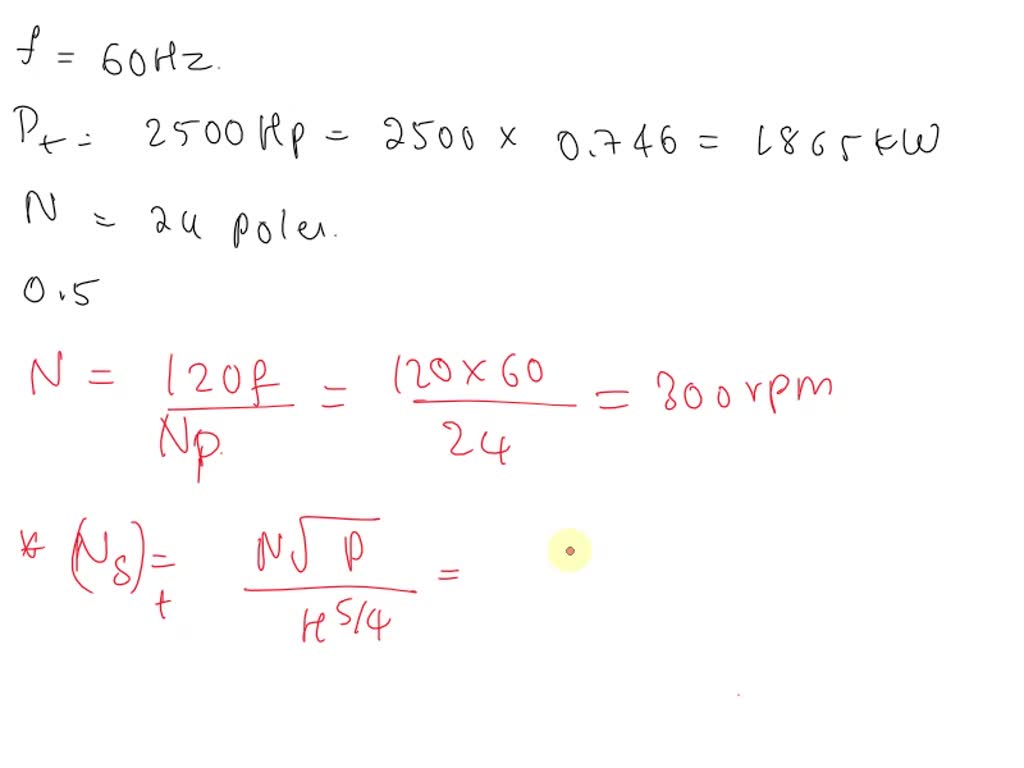 f = 60Hz.
Pt = 2500 Hp = 2500 × 0.746 = 1865 kW
N = 24 poles.
0.5
N = 120f / Np. = 120 × 60 / 24 = 300 rpm
* (Ns)t = N√P / H^5/4 =